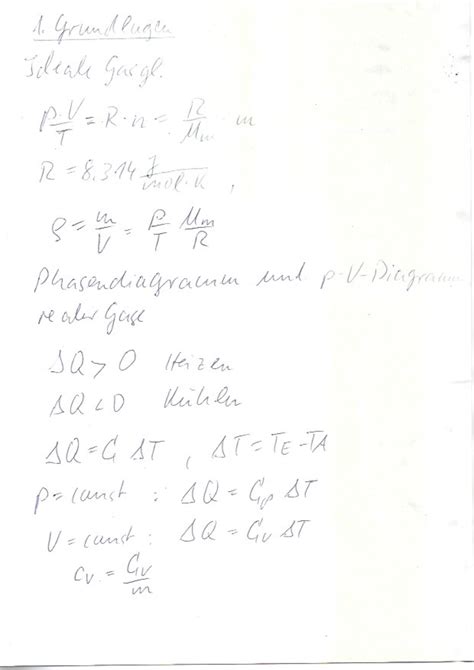 1. Grundlagen
Ideale Gasgl.
p·V/T = R·n = R/Mm · m
R = 8.314 J/mol·K ,
ρ = m/V = p/T Mm/R
Phasendiagramm und p-V-Diagramm
realer Gase
ΔQ > 0 Heizen
ΔQ < 0 Kühlen
ΔQ = C ΔT , ΔT = TE - TA
p = const : ΔQ = Cp ΔT
V = const : ΔQ = Cv ΔT
cv = Cv/m